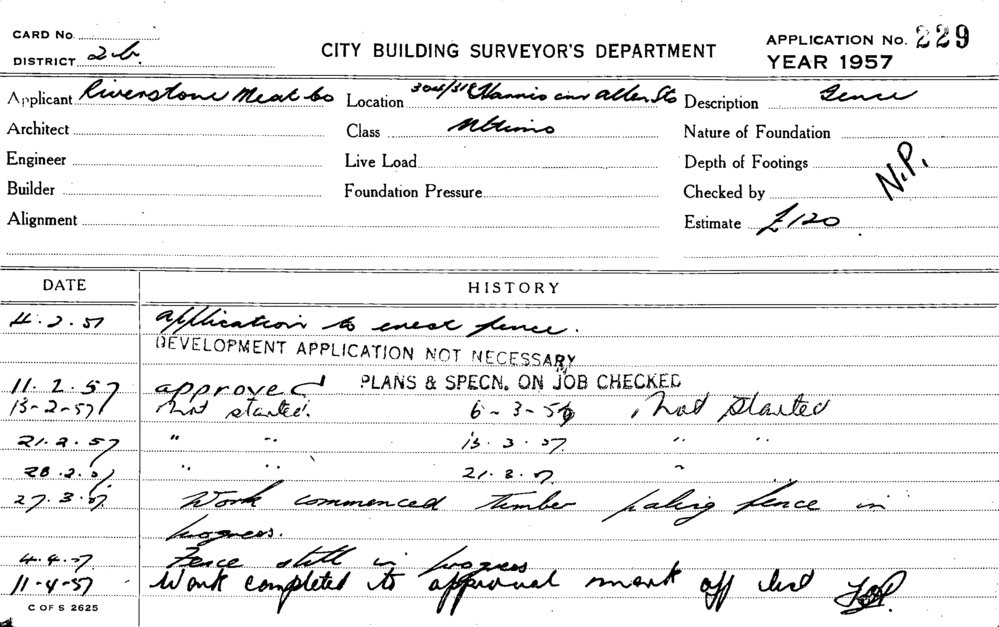 CARD No.
DISTRICT 2b.
CITY BUILDING SURVEYOR'S DEPARTMENT
APPLICATION No. 229
YEAR 1957
Applicant Riverstone Meat Co Location 304/318 Harris and Allen Sts Description Fence
Architect Class Nature of Foundation
Engineer Live Load Depth of Footings
N.P.
Builder Foundation Pressure Checked by
Alignment Estimate £120
DATE HISTORY
4.2.57 Application to erect fence.
DEVELOPMENT APPLICATION NOT NECESSARY
11.2.57 approved PLANS & SPECN. ON JOB CHECKED
13-2-57 Not started. 6-3-57 Not started
21.2.57 " " 13.3.57. " "
28.2.57 " " 21.3.57. "
27.3.57. Work commenced timber paling fence in
progress.
4.4.57 Fence still in progress
11-4-57 Work completed to approval mark off
C OF S 2625